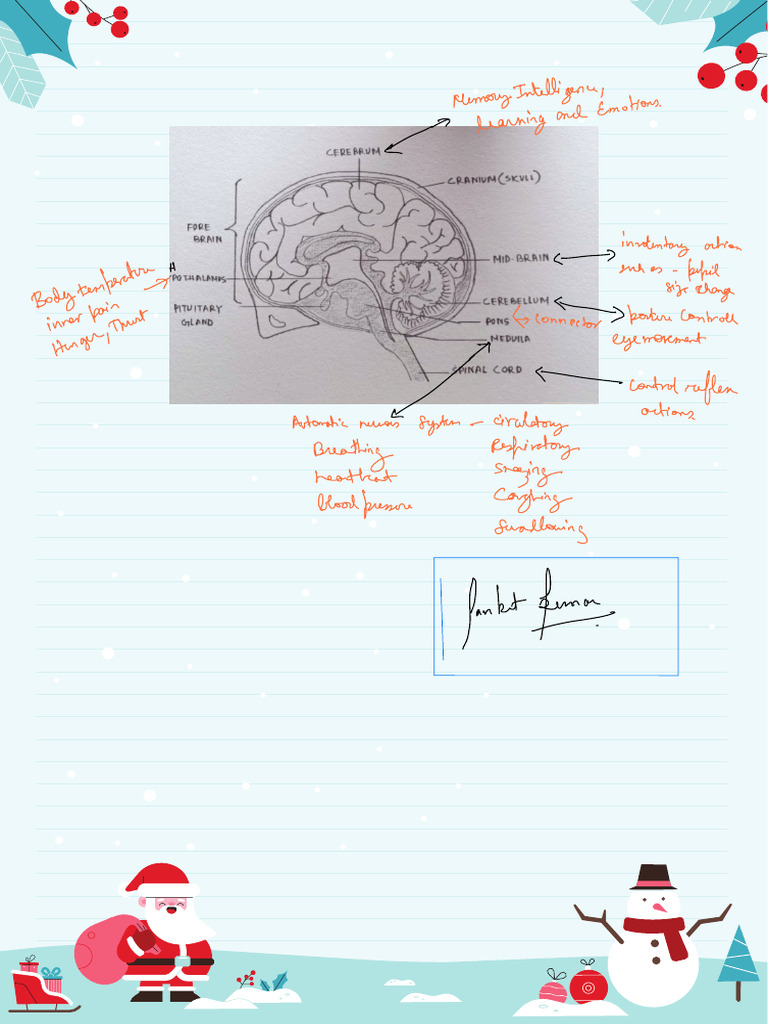 Memory. Intelligence,
Learning and Emotions.
CEREBRUM
CRANIUM (SKULL)
FORE
BRAIN
MID-BRAIN
involentary action
such as - pupil
size change
H
POTHALAMUS
Body temperature
inner pain
Hunger, Thrust
PITUITARY
GLAND
CEREBELLUM
posture Controll
eye movement
PONS
connector
MEDULLA
SPINAL CORD
Control reflex
actions
Automatic nervous System - circulatory
Breathing
Respiratory
heartbeat
Sneezing
blood pressure
Coughing
Swallowing
Sanket Kumar